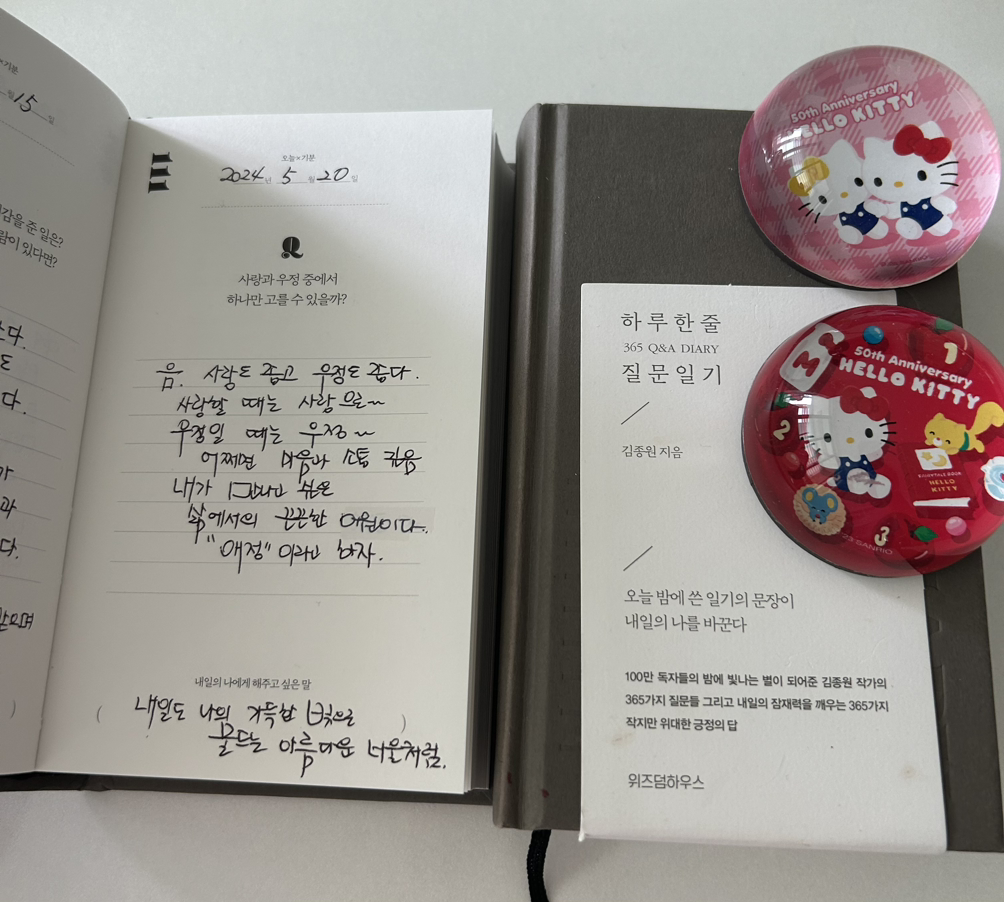 ×기분
월 15 일
감을 준 일은?
람이 있다면?
다.
도
다.
가
과
다.
으며
)
111
오늘×기분
2024년 5월 20일
Q
사랑과 우정 중에서
하나만 고를 수 있을까?
음. 사랑도 좋고 우정도 좋다.
사랑할 때는 사랑으로~
우정일 때는 우정~
어쩌면 마음과 소통 깊음
내가 싶은
삶에서의 끈끈한 애원이다.
"애정"이라고 하자.
내일의 나에게 해주고 싶은 말
( 내일도 나의 가득한 빛으로 )
물드는 아름다운 너울처럼.
하루 한 줄
365 Q&A DIARY
질문 일기
김종원 지음
오늘 밤에 쓴 일기의 문장이
내일의 나를 바꾼다
100만 독자들의 밤에 빛나는 별이 되어준 김종원 작가의
365가지 질문들 그리고 내일의 잠재력을 깨우는 365가지
작지만 위대한 긍정의 답
위즈덤하우스
50th Anniversary
HELLO KITTY
50th Anniversary
HELLO KITTY
1
2
3
HELLO
KITTY
SANRIO